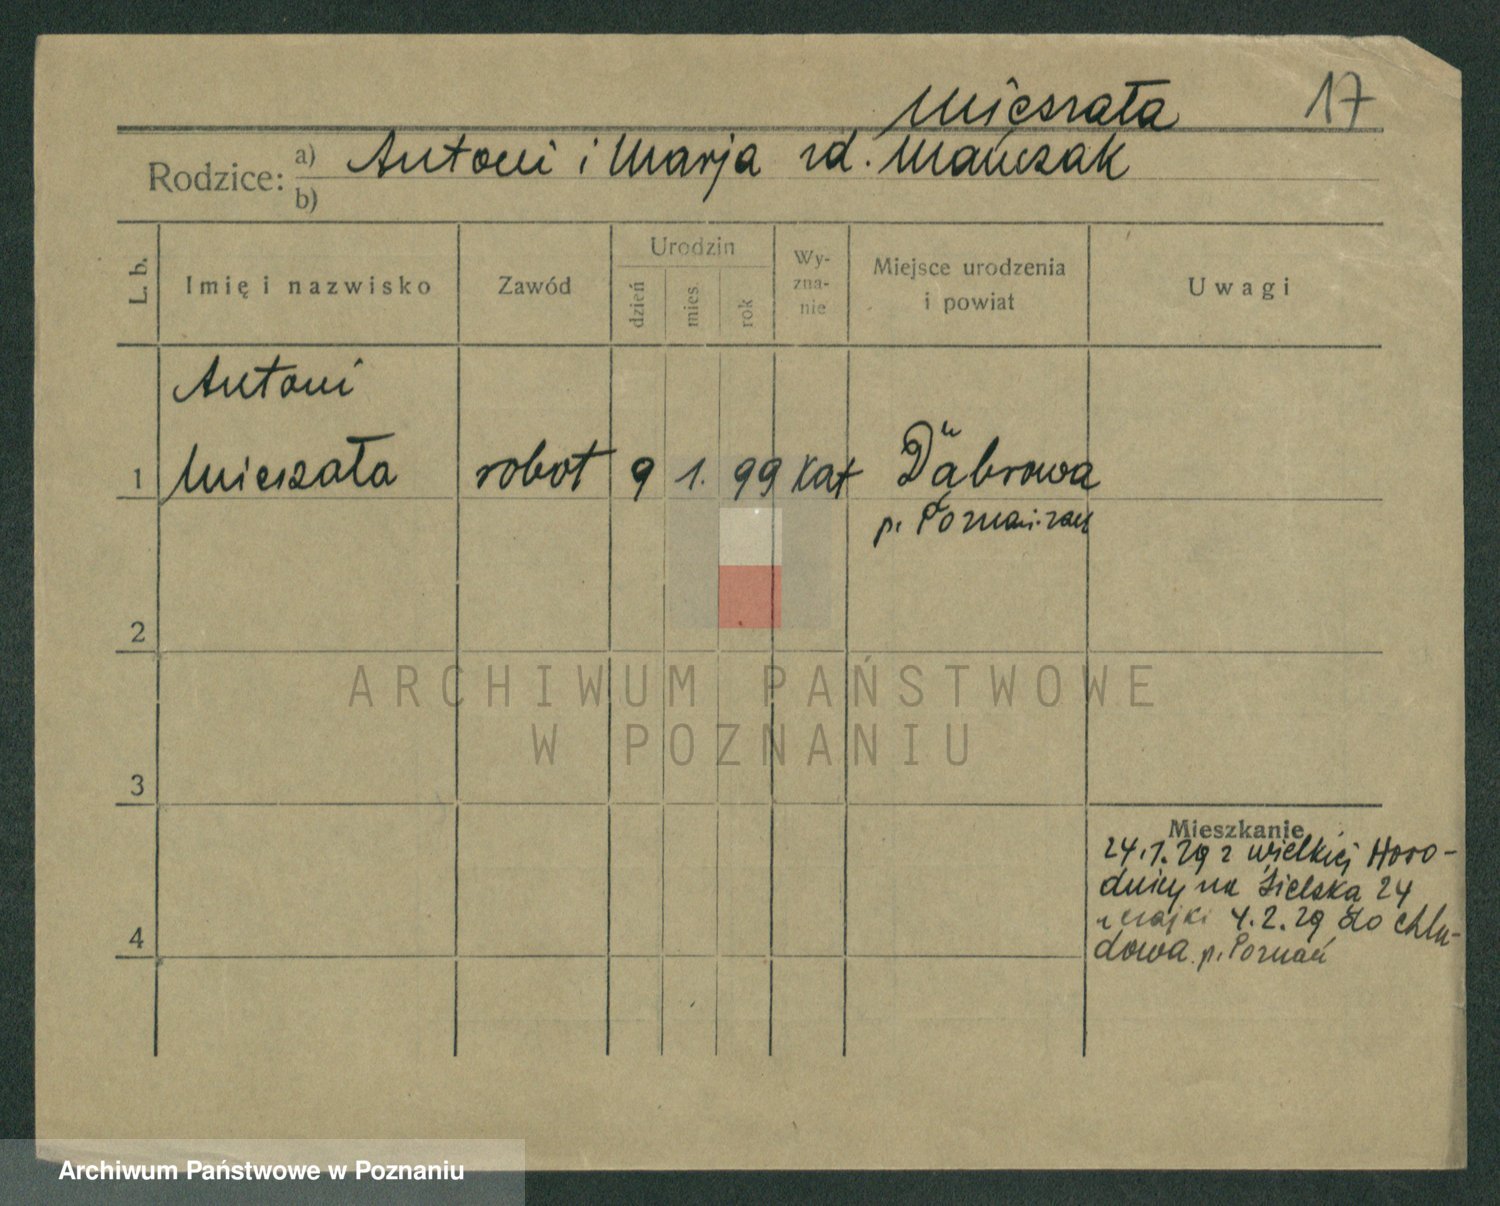 Mieszała
17
Rodzice: a) Antoni i Marja zd. Mańczak
b)
L. b.
Imię i nazwisko
Zawód
Urodzin
dzień
mies.
rok
Wy-
zna-
nie
Miejsce urodzenia
i powiat
Uwagi
Antoni
1 Mieszała robot 9 1. 99 kat Dąbrowa
p. Poznań.zach
2
ARCHIWUM PAŃSTWOWE
W POZNANIU
3
Mieszkanie
24.1.29 z wielkiej Horo-
dnicy na Sielska 24
4.2.29 do Chlu-
4
dowa p. Poznań
Archiwum Państwowe w Poznaniu